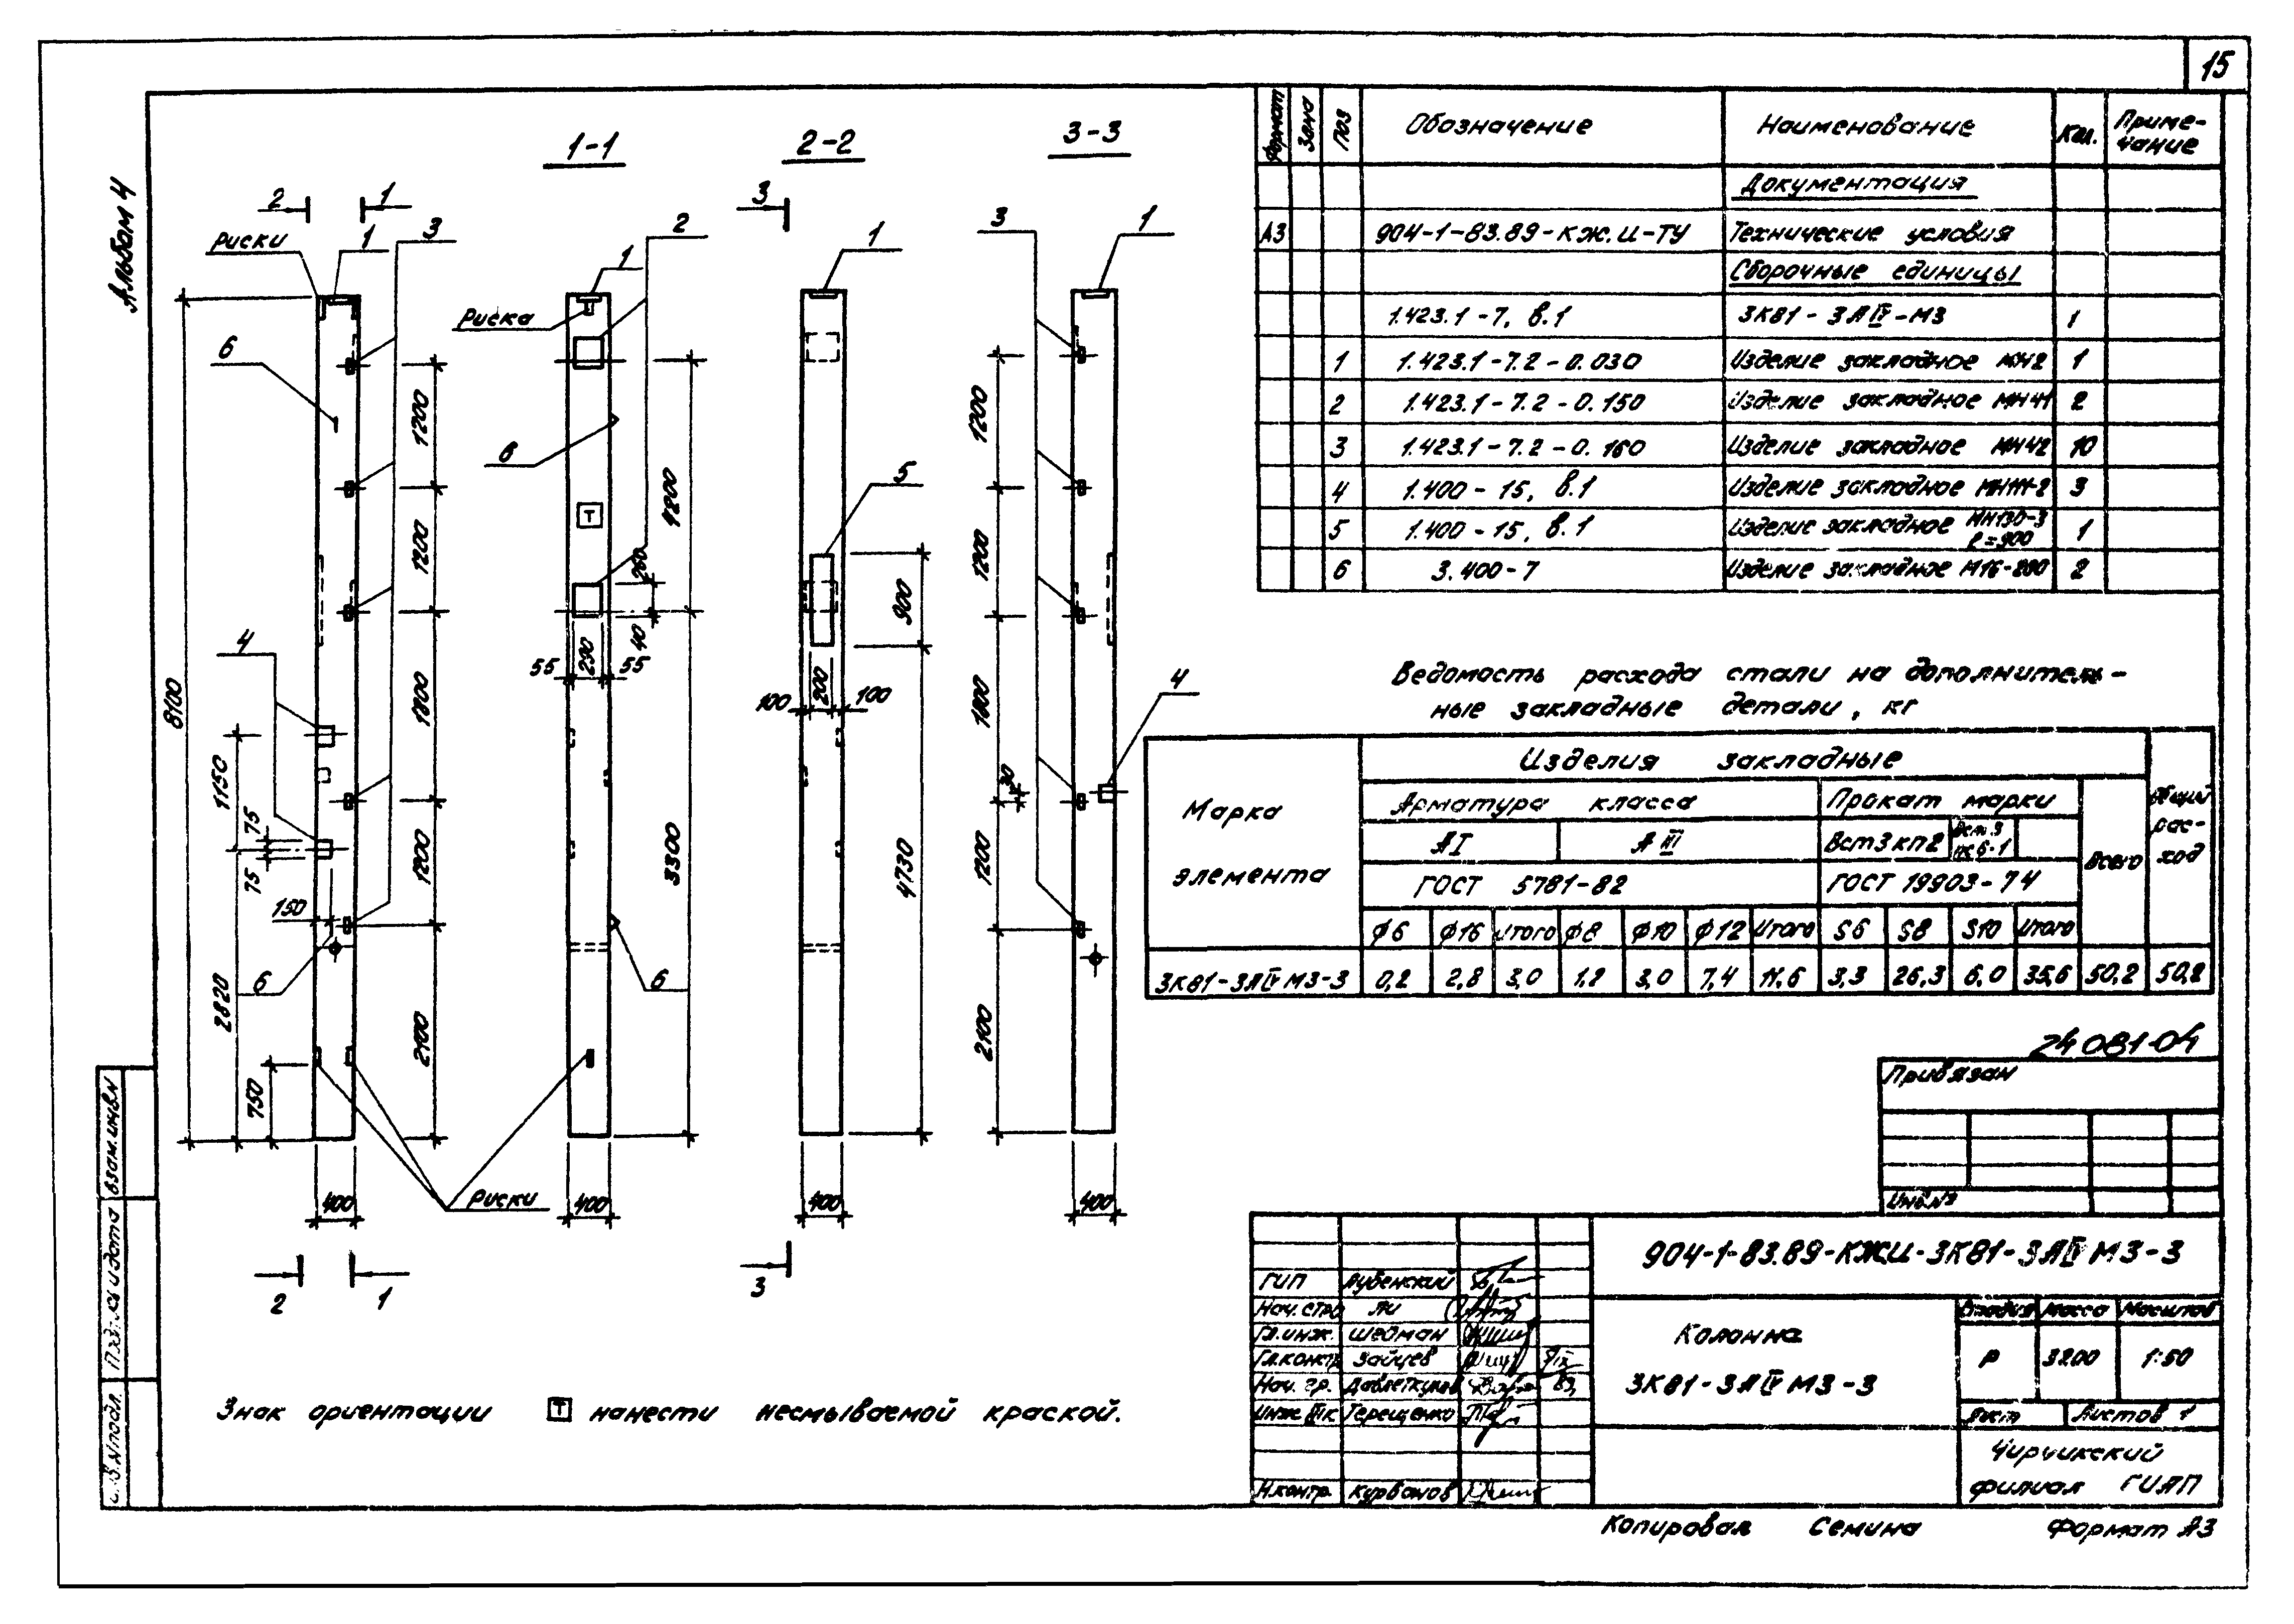 15
Альбом 4
1-1
2-2
3-3
2
1
3
Риски
1
3
2
1
3
1
1
Риска
6
6
5
4
4
6
6
8100
1200
1200
1800
1200
2100
1150
75
75
150
2820
750
400
4800
3300
260
40
55
290
55
400
900
4730
100
200
100
400
1200
1200
1800
30
1200
2100
400
Риски
2
1
3
Знак ориентации Т нанести несмываемой краской.
Формат
Зона
Поз
Обозначение
Наименование
Кол.
Приме-
чание
Документация
А3 904-1-83.89-КЖ.И-ТУ Технические условия
Сборочные единицы
1.423.1-7, в.1 3К81-3АIV-М3 1
1 1.423.1-7.2-0.030 Изделие закладное МН2 1
2 1.423.1-7.2-0.150 Изделие закладное МН41 2
3 1.423.1-7.2-0.160 Изделие закладное МН42 10
4 1.400-15, в.1 Изделие закладное МН111-2 3
5 1.400-15, в.1 Изделие закладное МН130-3 ℓ=900 1
6 3.400-7 Изделие закладное М16-200 2
Ведомость расхода стали на дополнитель-
ные закладные детали, кг
Марка
элемента
Изделия закладные
Арматура класса
Прокат марки
АI
АIII
Вст3кп2
Вст.3 пс6-1
Всего
Общий
рас-
ход
ГОСТ 5781-82
ГОСТ 19903-74
Ф6 Ф16 Итого Ф8 Ф10 Ф12 Итого S6 S8 S10 Итого
3К81-3АIVМ3-3 0,2 2,8 3,0 1,2 3,0 7,4 11,6 3,3 26,3 6,0 35,6 50,2 50,2
24081-04
Привязан
Инв.№
904-1-83.89-КЖИ-3К81-3АIVМ3-3
ГИП Лубенский
Нач. стро Ли
Гл.инж. Шейман
Гл.контр Зайцев
Нач. гр.
Инж IIк Терещенко
Н.контр. Курбанов
Колонна
3К81-3АIVМ3-3
Стадия Масса Масштаб
Р 3200 1:50
Лист Листов 1
Чирчикский
филиал ГИАП
Взам.инв.N
Подп. и дата
Копировал Семина Формат А3